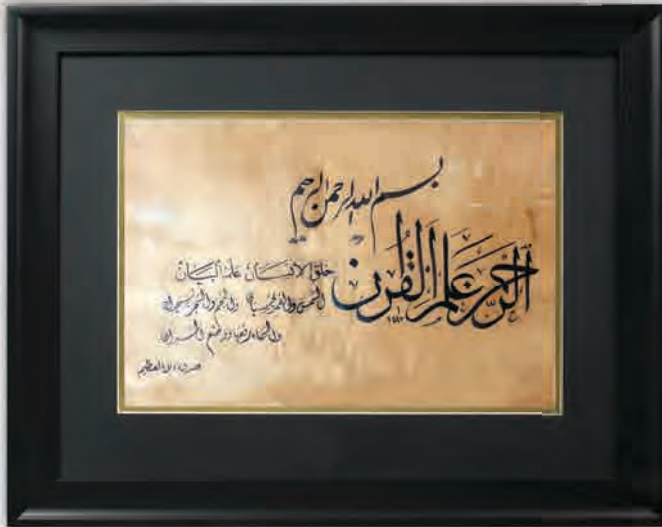 بسم الله الرحمن الرحيم
الرحمن علم القرآن
خلق الإنسان علمه البيان
الشمس والقمر بحسبان والنجم والشجر يسجدان
والسماء رفعها ووضع الميزان
صدق الله العظيم